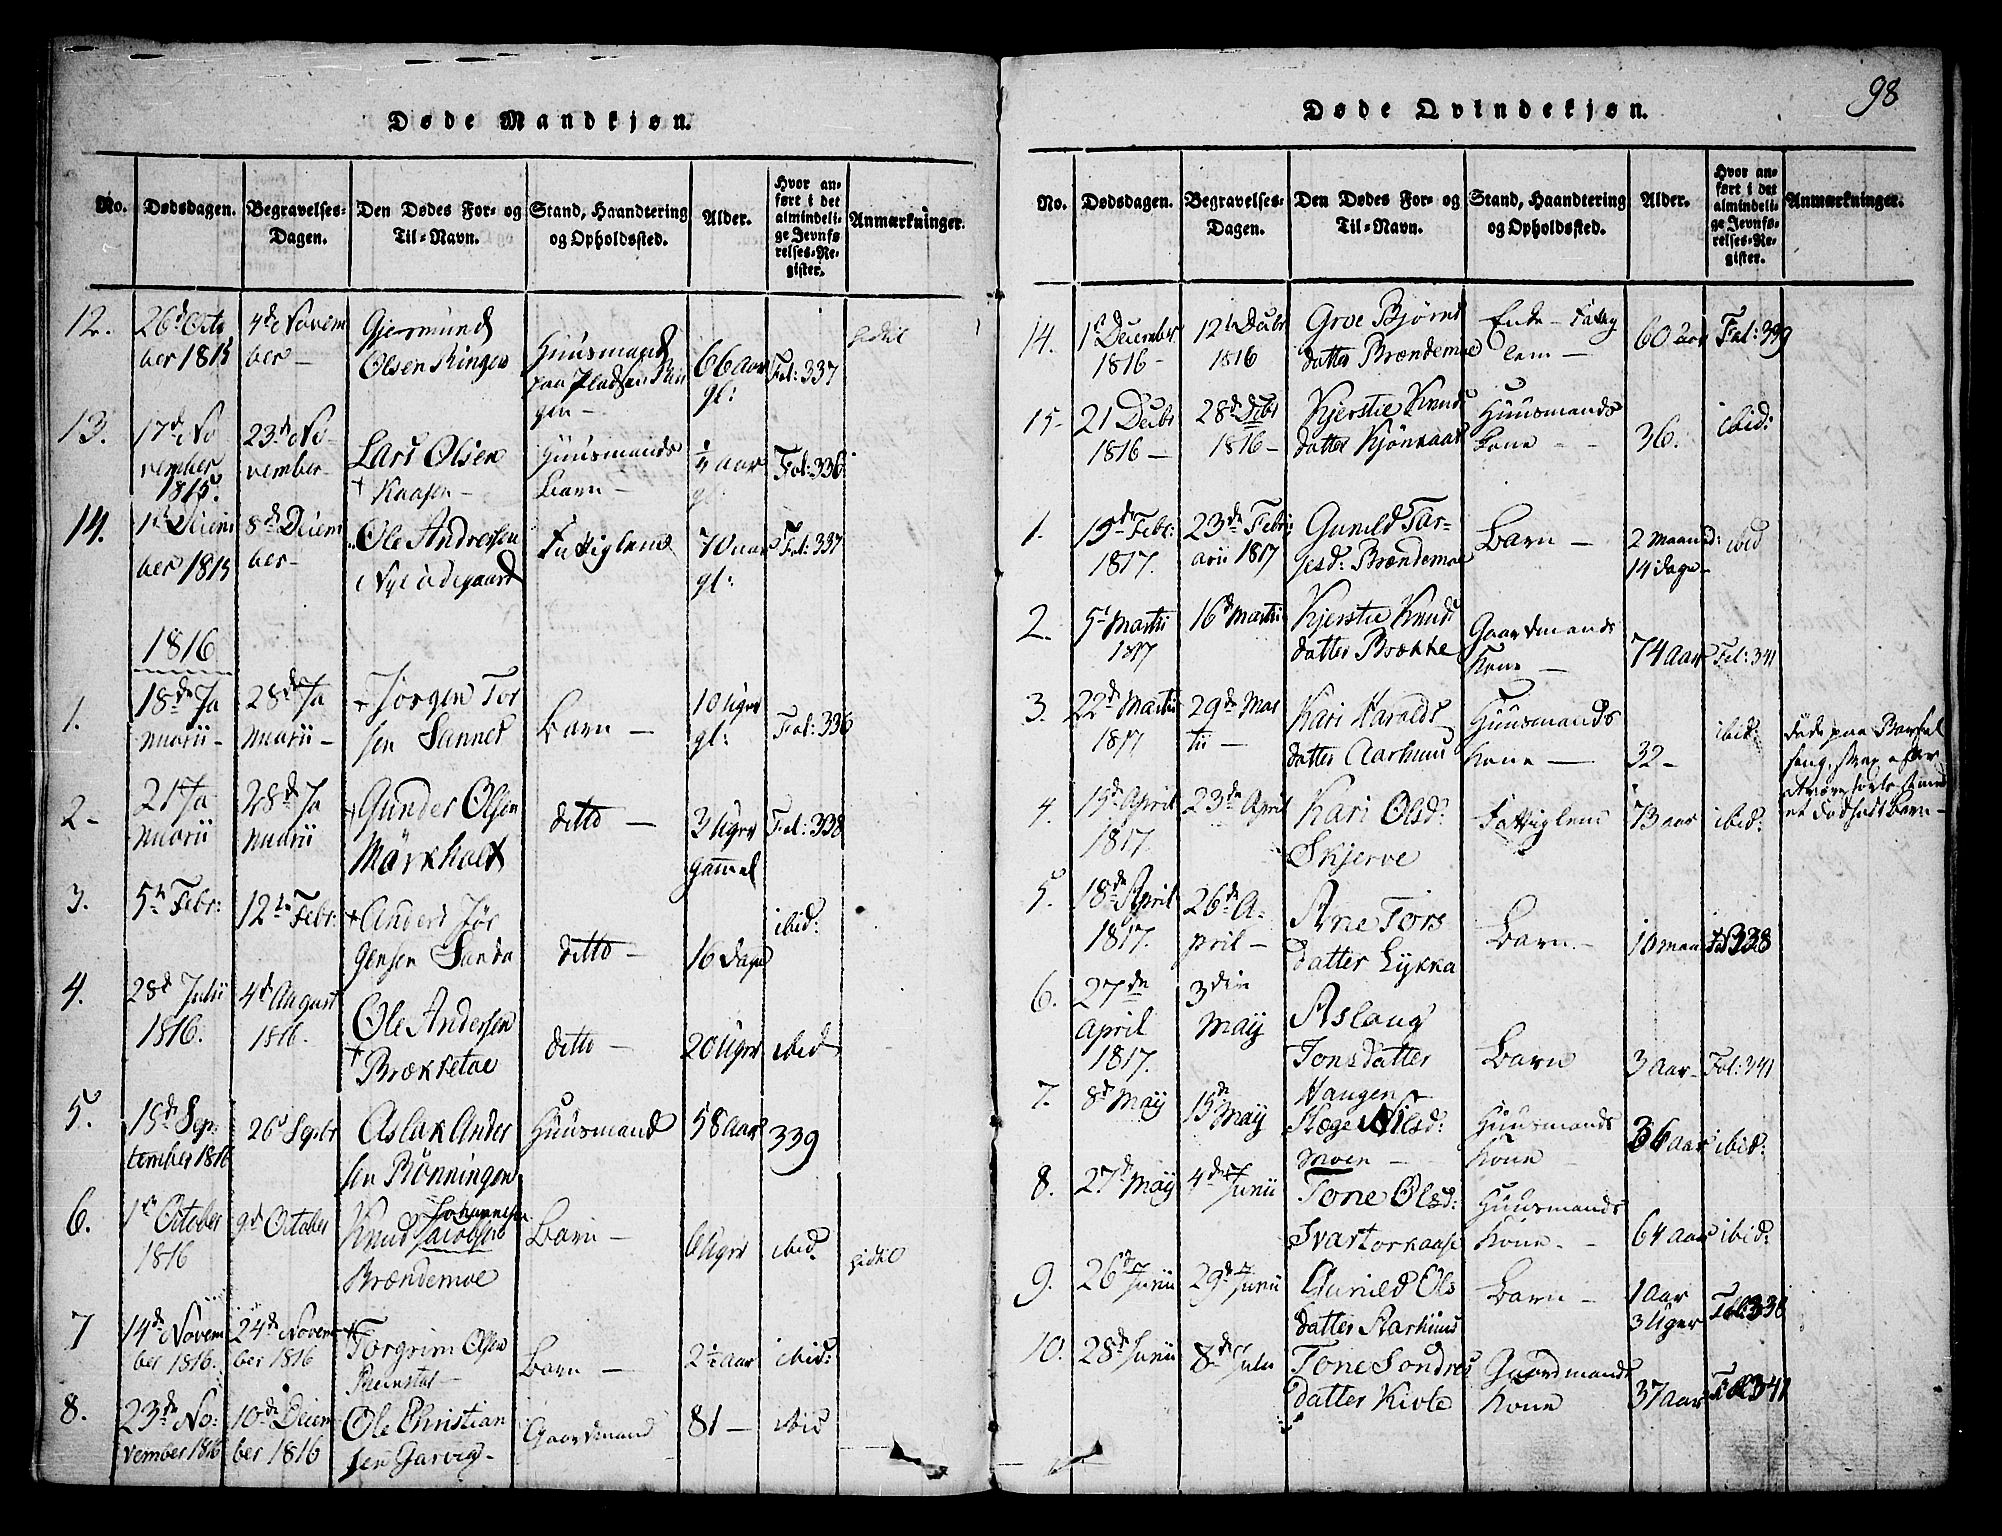 98
Døde Mandkjøn.
No.
Dødsdagen.
Begravelses-
Dagen.
Den Dødes For- og
Til-Navn.
Stand, Haandtering
og Opholdssted.
Alder.
Hvor an-
ført i det
almindeli-
ge Jevnfø-
relses-Re-
gister.
Anmærkninger.
12.
26d Octo
ber 1815
4de Novem
ber -
Gjermund
Olsen Ringen
Huusmand
paa Pladsen Rin
gen -
66 aar
gl:
Fol: 337
13.
17d No
vember
1815.
23de No-
vember
Lars Olsen
Kaasen -
Huusmands
Barn -
Fol: 336
14.
1st Decem
ber 1815
8de Decem
ber -
Ole Andersen
Nye ødegaard
Fattiglem
70 aar
gl:
Fol: 337
1816
1.
18de Ja
nuarii -
28de Ja
nuarii -
Jørgen Tor
sen Sannes
Barn -
10 Uger
gl:
Fol: 336
2 -
21 Ja
nuarii
28de Ja
nuarii
Gunder Olsen
Mörkholt
ditto -
3 Uger
gammel
Fol: 338
3.
5te Febr:
12te Febr:
Anders Jör
gensen Sanda
ditto -
16 Dage
ibid:
4.
28d Julii
1816.
4d August
1816.
Ole Andersen
Brækketoe
ditto -
20 Uger
ibid
5.
15de Sep
tember 1816
26d Septbr
Aslak Ander
sen Rönningen
Huusmand
58 aar
339
6.
1st October
1816
9d October
Johannesen
Knud Jacobsen
Brændemoe
Barn -
Uger
ibid:
7
14de Novem
ber 1816.
24de Novem
ber 1816
Torgrim Olsen
Barn -
2½ aar
ibid:
8.
23de No:
vember 1816
10de Decem
ber 1816
Ole Christian
sen Jarvig -
Gaardmand
81 -
ibid
Døde Qvindekjøn.
No.
Dødsdagen.
Begravelses-
Dagen.
Den Dødes For- og
Til-Navn.
Stand, Haandtering
og Opholdssted.
Alder.
Hvor an-
ført i det
almindeli-
ge Jevnfø-
relses-Re-
gister.
Anmærkninger.
14.
1st December
1816 -
12te Decbr
1816
Groe Bjørns
datter Brændemoe
Enke - Fattig
lem -
60 aar
Fol: 339
15 -
21 Decbr
1816 -
28de Decbr
1816 -
Kjerstie Knuds
datter Kjönkaas
Huusmands
Kone -
36.
ibid:
1.
15de Febr:
1817.
23de Febru
arii 1817
Gunild Tar-
jesd: Brændemoe
Barn -
2 Maaned:
14 dage -
ibid
2.
5t Martii
1817
16d Martii
Kjerstie Knuds
datter Brække
Gaardmands
Kone -
74 aar
Fol: 341
3.
22d Martii
1817
29de Mar
tii -
Kari Haralds
datter Aarhuus
Huusmands
Kone -
32 -
ibid:
døde paa Barsel
seng, strax efter
4.
15de April
1817.
23de April
Kari Olsd:
Skjerve
Fattiglem
73 aar
ibid:
5.
18de April
1817.
26de A-
pril -
Ane Tors
datter Lykka
Barn -
10 maan
338
6.
27de
April
1817.
3die
Maÿ
Aslaug
Jonsdatter
Haugen
Barn
3 Aar -
Fol: 341
7.
8d Maÿ
15de
Maÿ
Hæge Nilsd:
moen -
Huusmands
Kone -
36 aar
ibid:
8.
27de Maÿ
4de Junii
Tone Olsd:
Svartorkaase
Huusmands
Kone -
64 aar
ibid:
9.
26d Junii
29de Junii
Gunild Ols
datter Aarhuus
Barn -
1 Aar
3 Uger
Fol: 338
10.
28de Junii
8de Julii
Tone Sondres
datter Kivle
Gaardmands
Kone
37 aar
Fol: 341